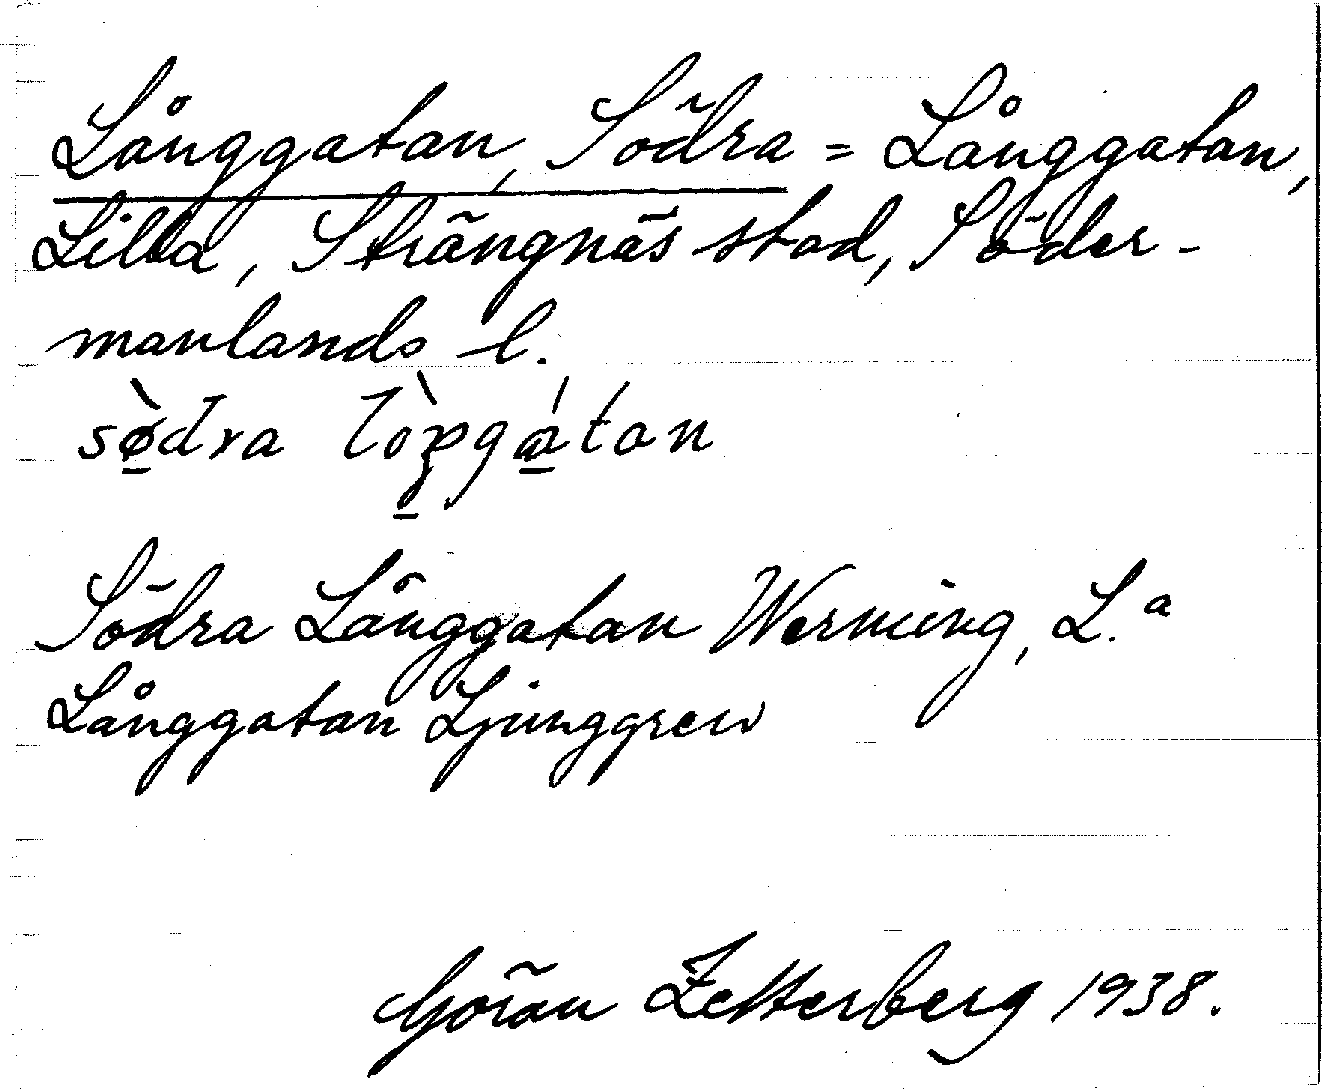 Långgatan, Södra = Långgatan,
Lilla, Strängnäs stad, Söder-
manlands l.
södra
Södra Långgatan Werming, L.a
Långgatan Ljunggren
Göran Zetterberg 1938.